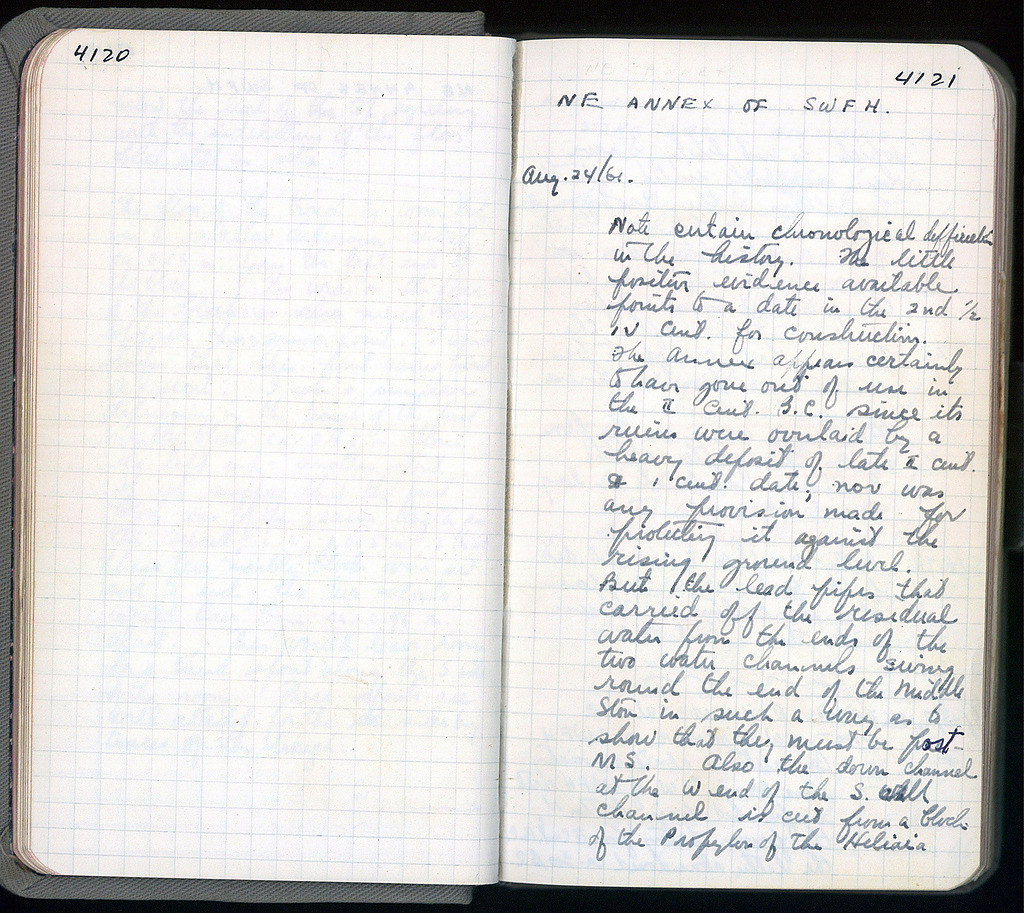 4120
4121
NE ANNEX OF SWFH.
Aug. 24/61.
Note certain chronological difficulties
in the history. The little
positive evidence available
points to a date in the 2nd 1/2
IV cent. for construction.
The Annex appears certainly
to have gone out of use in
the II cent. B.C. since its
ruins were overlaid by a
heavy deposit of late II cent.
I cent. date; nor was
any provision made for
protecting it against the
rising ground level.
But the lead pipes that
carried off the residual
water from the ends of the
two water channels swing
round the end of the Middle
Stoa in such a way as to
show that they must be post-
MS. Also the down channel
at the W end of the S. wall
channel is cut from a block
of the Propylon of the Heliaia